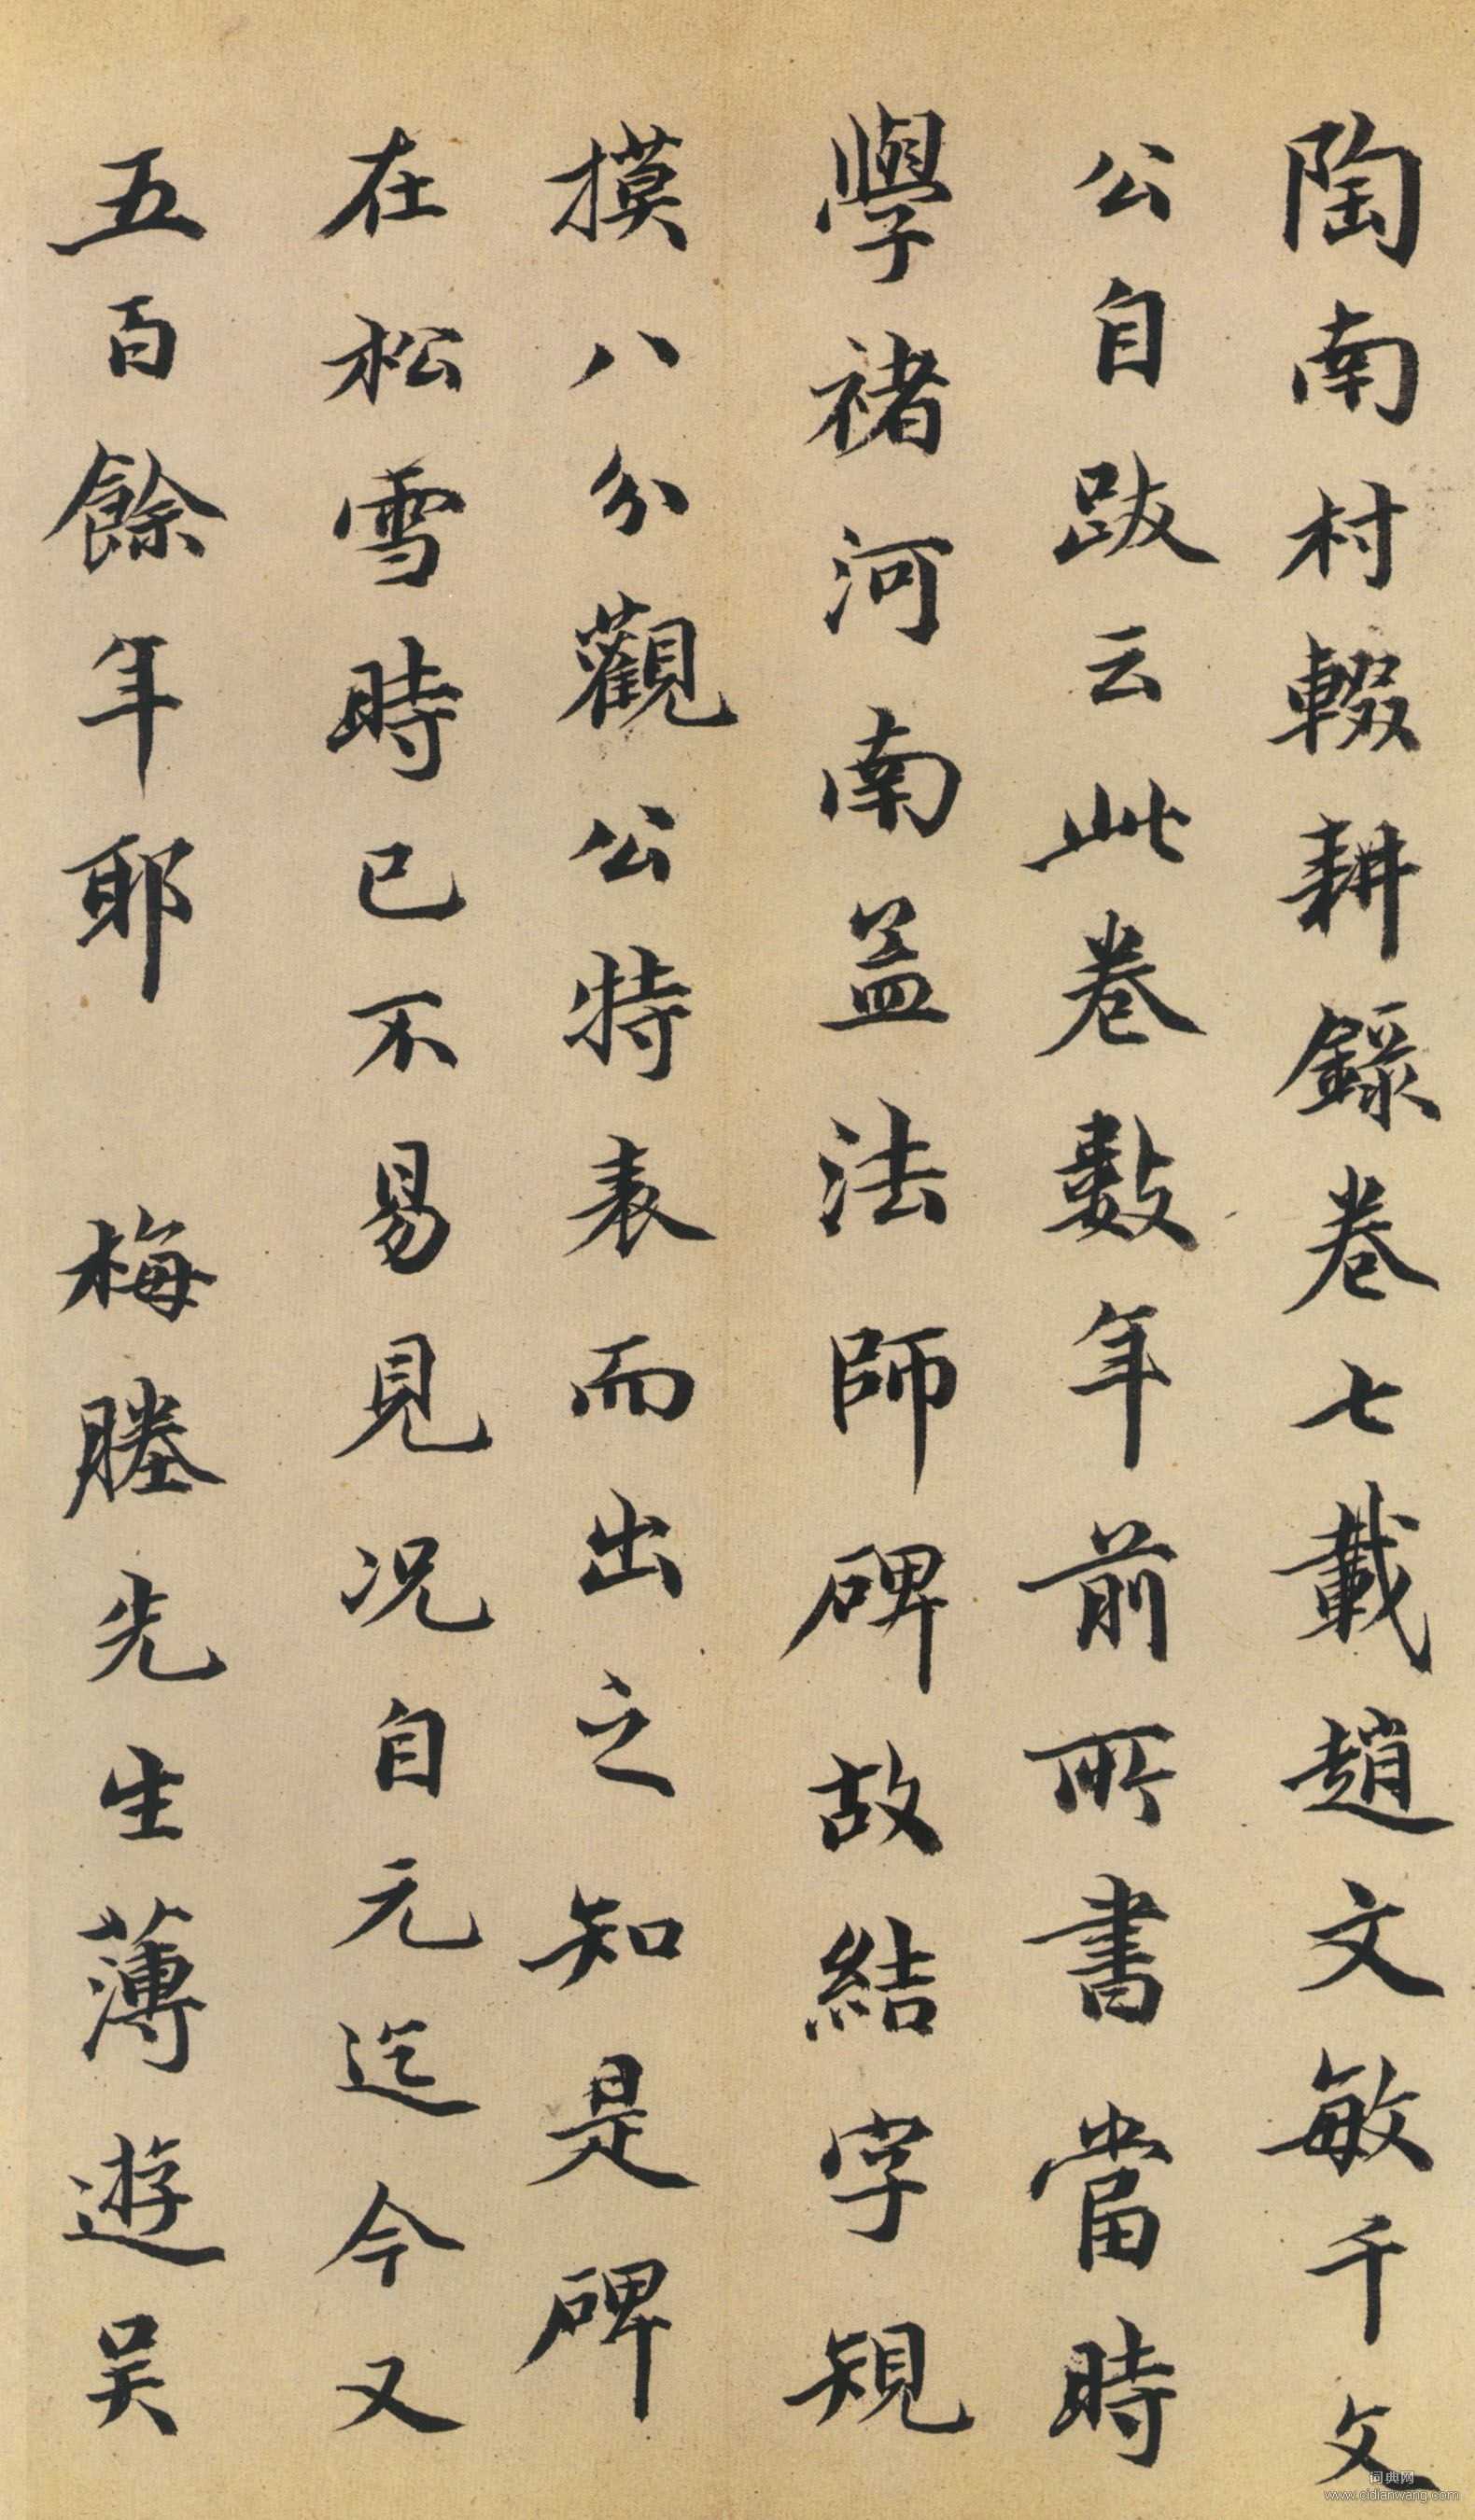 陶南村輟耕錄卷七載趙文敏千文
公自跋云此卷數年前所書當時
學褚河南孟法師碑故結字規
摸八分觀公特表而出之知是碑
在松雪時已不易見況自元迄今又
五百餘年耶 梅塍先生薄遊吴
词典网
www.cidianwang.com